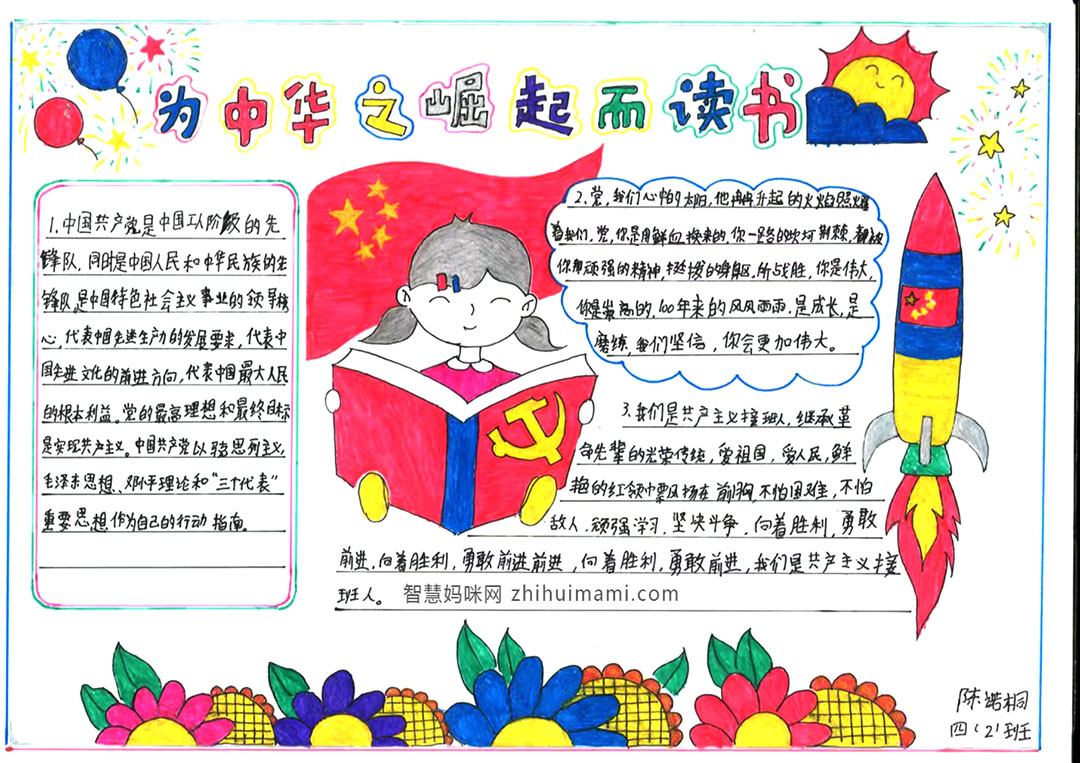 为中华之崛起而读书
1.中国共产党是中国工人阶级的先
锋队，同时是中国人民和中华民族的先
锋队，是中国特色社会主义事业的领导核
心，代表中国先进生产力的发展要求，代表中
国先进文化的前进方向，代表中国最大人民
的根本利益。党的最高理想和最终目标
是实现共产主义。中国共产党以马列主义，
毛泽东思想、邓小平理论和“三个代表”
重要思想作为自己的行动指南。
2.党，我们心中的太阳，他冉冉升起的火焰照耀
着我们，党，你是用鲜血换来的，你一路的坎坷荆棘，都被
你用顽强的精神，挺拔的身躯，所战胜，你是伟大，
你是崇高的，100年来的风风雨雨，是成长，是
磨练，我们坚信，你会更加伟大。
3.我们是共产主义接班人，继承革
命先辈的光荣传统，爱祖国，爱人民，鲜
艳的红领巾飘扬在前胸，不怕困难，不怕
敌人，顽强学习，坚决斗争，向着胜利，勇敢
前进，向着胜利，勇敢前进前进，向着胜利，勇敢前进，我们是共产主义接
班人。
智慧妈咪网 zhihuimami.com
陈诺桐
四（2）班